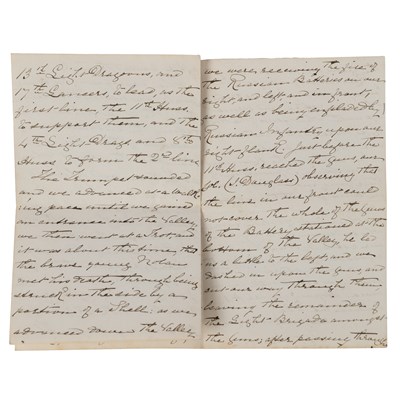 13th Light Dragoons, and
17th Lancers, to lead, as the
first line, the 11th Huss.
to support them, and the
4th Light Drags and 8th
Huss to form the 2nd line
The Trumpet sounded
and we advanced at a walk
ing pace until we gained
an entrance into the Valley
we then went at a trot, and
it was about this time that
the brave young Nolan
met his death, through being
struck in the side by a
portion of a Shell: as we
advanced down the Valley
we were receiving the fire of
the Russian Batteries on our
right, and left and in front,
as well as being enfiladed by
Russian Infantry upon our
right flank. Just before the
11th Huss. reached the Guns, our
Col. (J. Douglas) observing that
the line in our front could
not cover the whole of the Guns
of the Battery stationed at the
bottom of the Valley, he led
us a little to the left and we
dashed in upon the Guns, and
cut our way through them
leaving the remainder of
the Light Brigade amongst
the Guns; after passing through